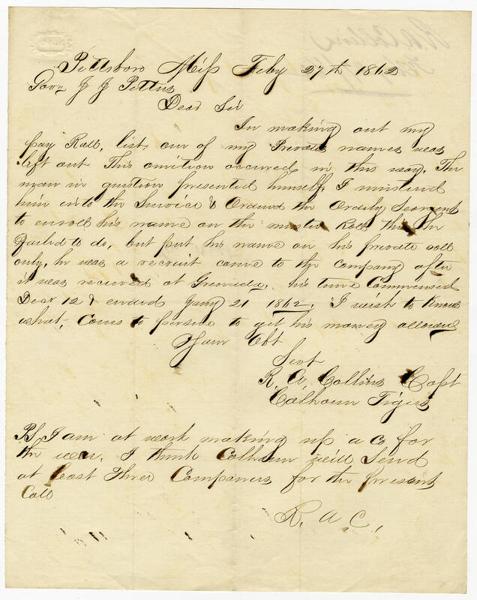 Pittsboro Miss Feby 27th 1862
Gov J J Pettus
Dear Sir
In making out my
pay Roll, list, one of my Privates names was
left out This omition occurred in this way. The
man in question presented himself, I mustered
him into the Service & Ordered the Orderly Seargent
to enroll his name on the muster Roll this he
failed to do, but put his name on his private roll
only, he was a recruit came to the company after
it was received at Grenada. his time Commenced
Decr 12 & ended Jany 21 1862. I wish to know
what, Course to persue to get his money allowed
Your Obt
Servt
R. A. Collins Capt
Calhoun Tigers
PS I am at work making up a Co. for
the war, I think Calhoun will Send
at least three Companies for the present
Call
R. A C.